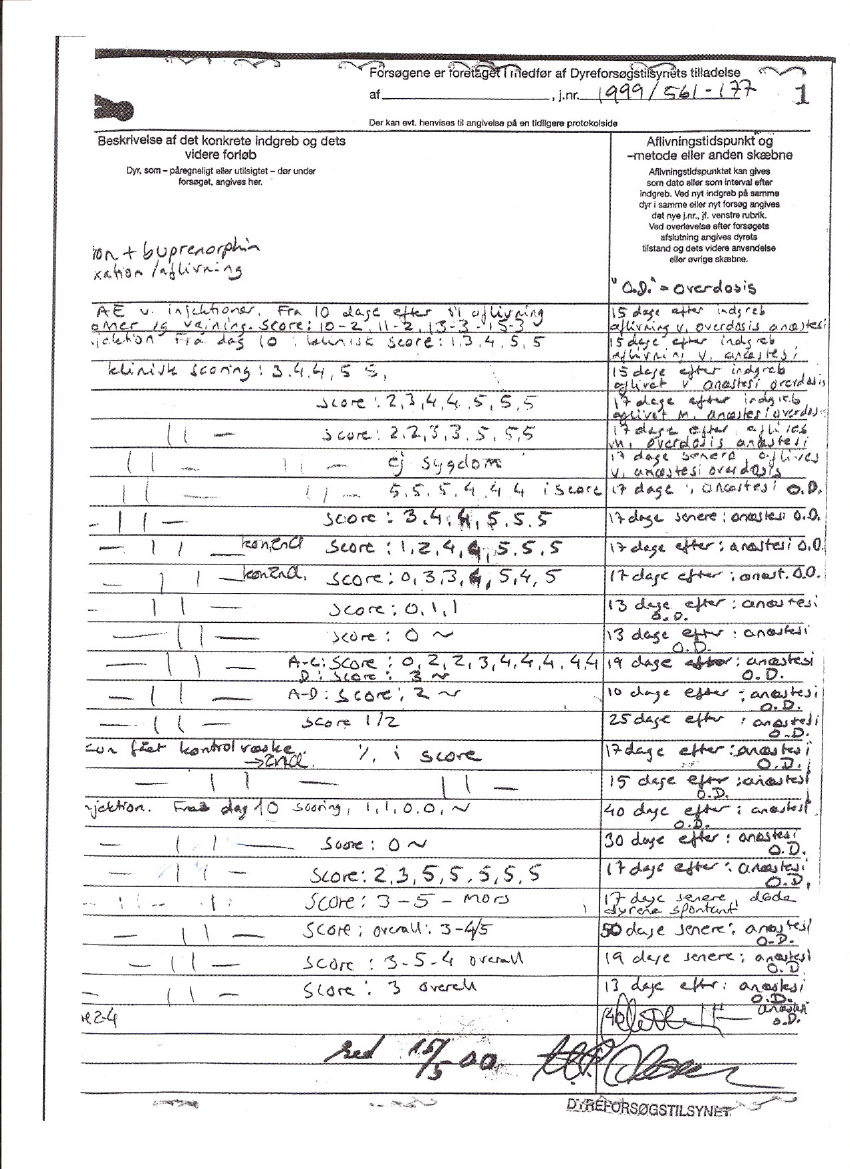 Forsøgene er foretaget i medfør af Dyreforsøgstilsynets tilladelse
af , j.nr. 1999/561-177 1
Der kan evt. henvises til angivelse på en tidligere protokolside
Beskrivelse af det konkrete indgreb og dets
videre forløb
Dyr, som – påregneligt eller utilsigtet – dør under
forsøget, angives her.
Aflivningstidspunkt og
–metode eller anden skæbne
Aflivningstidspunktet kan gives
som dato eller som interval efter
indgreb. Ved nyt indgreb på samme
dyr i samme eller nyt forsøg angives
det nye j.nr., jf. venstre rubrik.
Ved overlevelse efter forsøgets
afslutning angives dyrets
tilstand og dets videre anvendelse
eller øvrige skæbne.
ion + buprenorphin
xation/aflivning
"O.D." = overdosis
AE v. injektioner. Fra 10 dage efter til aflivning
omer og vejning. Score: 10-2, 11-2, 13-3-15-3
15 dage efter indgreb
aflivning v. overdosis anæstesi
jektion Fra dag 10 : klinisk score: 1,3,4,5,5
15 dage efter indgreb
aflivning v. anæstesi
klinisk scoring: 3,4,4,5 5,
15 dage efter indgreb
aflivet v anæstesi overdosis
score: 2,3,4,4,5,5,5
17 dage efter indgreb
aflivet m. anæstesi overdosis
— || — score: 2,2,3,3,5,5,5
17 dage efter, aflives
m. overdosis anæstesi
— || — — || — ej sygdom
17 dage senere aflives
v. anæstesi overdosis
— || — — || — 5,5,5,4,4,4 i score
17 dage : anæstesi O.D.
— || — score: 3,4,4,5,5,5
17 dage senere: anæstesi O.D.
— || — score: 1,2,4,4,5,5,5
17 dage efter: anæstesi O.D.
— || — score: 0,3,3,4,5,4,5
17 dage efter: anæst. O.D.
— || — score: 0,1,1
13 dage efter: anæstesi
O.D.
— || — score: 0 ~
13 dage efter: anæstesi
O.D.
— || — A-C: score: 0,2,2,3,4,4,4,4,4
D: score: 3 ~
19 dage efter: anæstesi
O.D.
— || — A-D: score: 2 ~
10 dage efter: anæstesi
O.D.
— || — score 1/2
25 dage efter: anæstesi
O.D.
kun fået kontrolvæske
% i score
17 dage efter: anæstesi
O.D.
— || — — || —
15 dage efter: anæstesi
O.D.
njektion. Fra dag 10 scoring, 1,1,0,0, ~
40 dage efter: anæstesi
O.D.
— || — score: 0 ~
30 dage efter: anæstesi
O.D.
— || — score: 2,3,5,5,5,5,5
17 dage efter: anæstesi
O.D.
— || — score: 3-5 - mors
17 dage senere, døde
dyrene spontant
— || — score: overall: 3-4/5
50 dage senere: anæstesi
O.D.
— || — score: 3-5-4 overall
19 dage senere: anæstesi
O.D
— || — score: 3 overall
13 dage efter: anæstesi
O.D.
re 2-4
anæstesi
O.D.
15/5-00
DYREFORSØGSTILSYNET